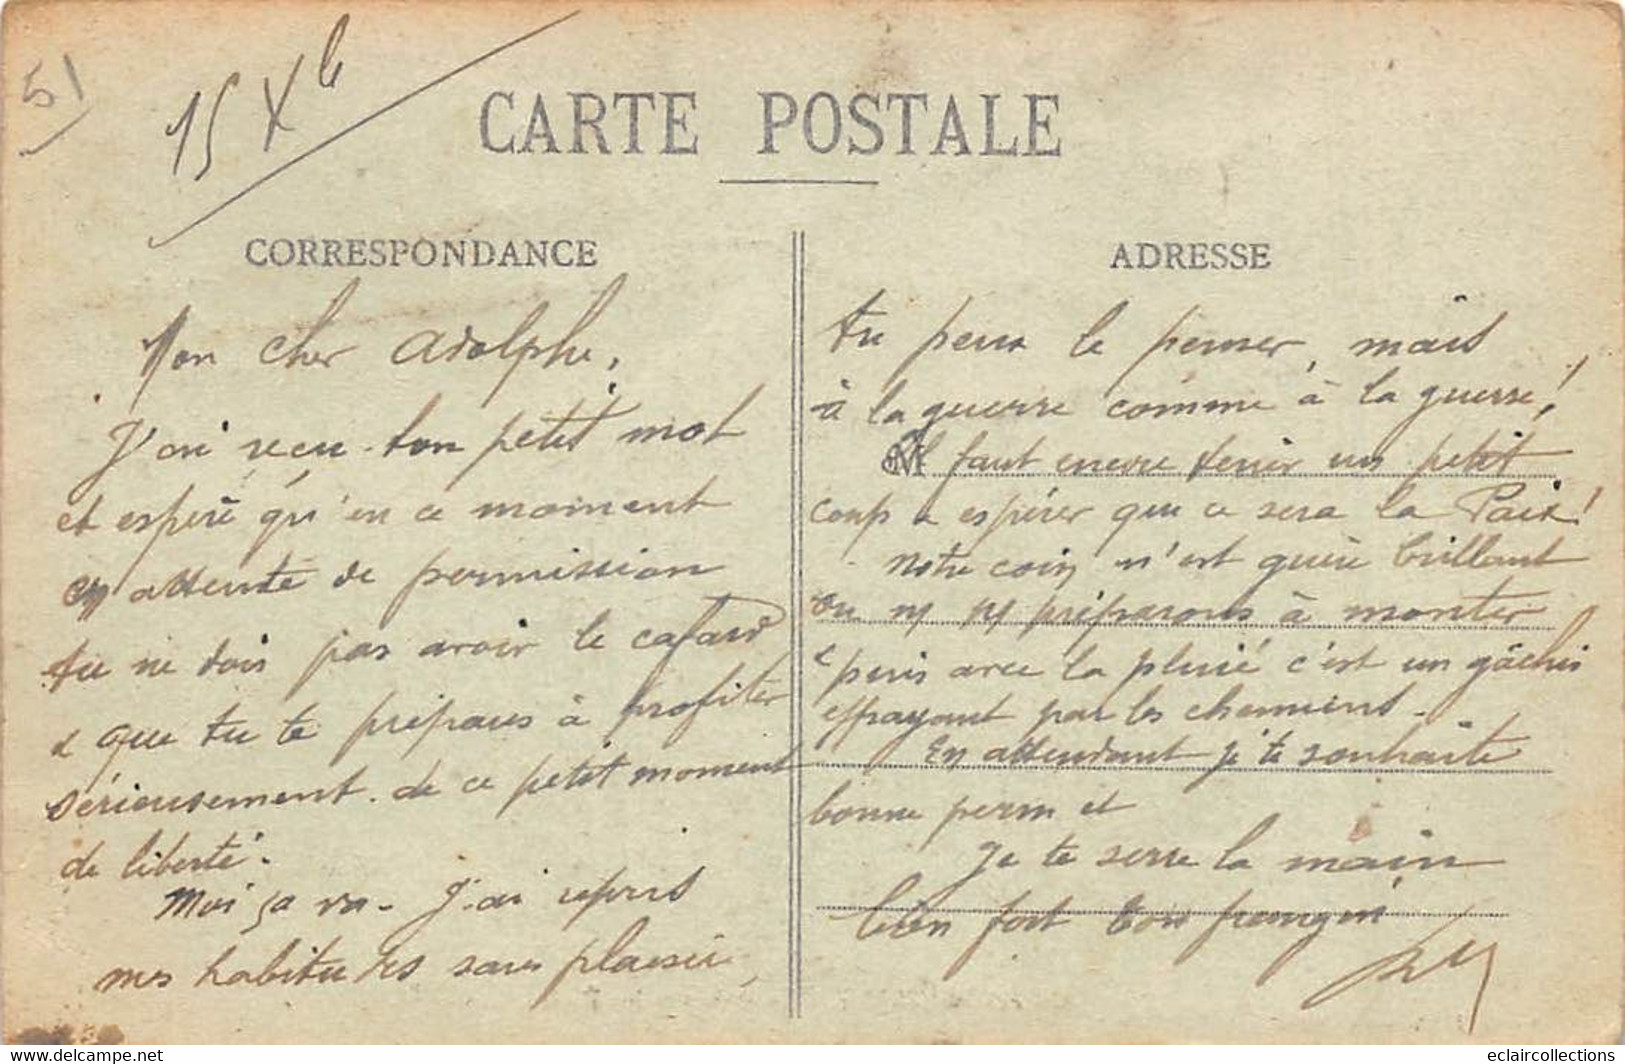 51
15 Xb
CARTE POSTALE
CORRESPONDANCE
Mon cher Adolphe,
J'ai reçu ton petit mot
et espère qu'en ce moment
en attente de permission
tu ne dois pas avoir le cafard
& que tu te prépares à profiter
sérieusement de ce petit moment
de liberté.
Moi ça va - J'ai repris
mes habitudes sans plaisir,
ADRESSE
tu peux le penser, mais
à la guerre comme à la guerre!
Il faut encore tenir un petit
coup & espérer que ce sera la Paix!
Notre coin n'est guère brillant
ns ns préparons à monter
& puis avec la pluie c'est un gâchis
effrayant par les chemins.
En attendant je te souhaite
bonne perm et
je te serre la main
bien fort ton frangin
eclaircollections
www.delcampe.net